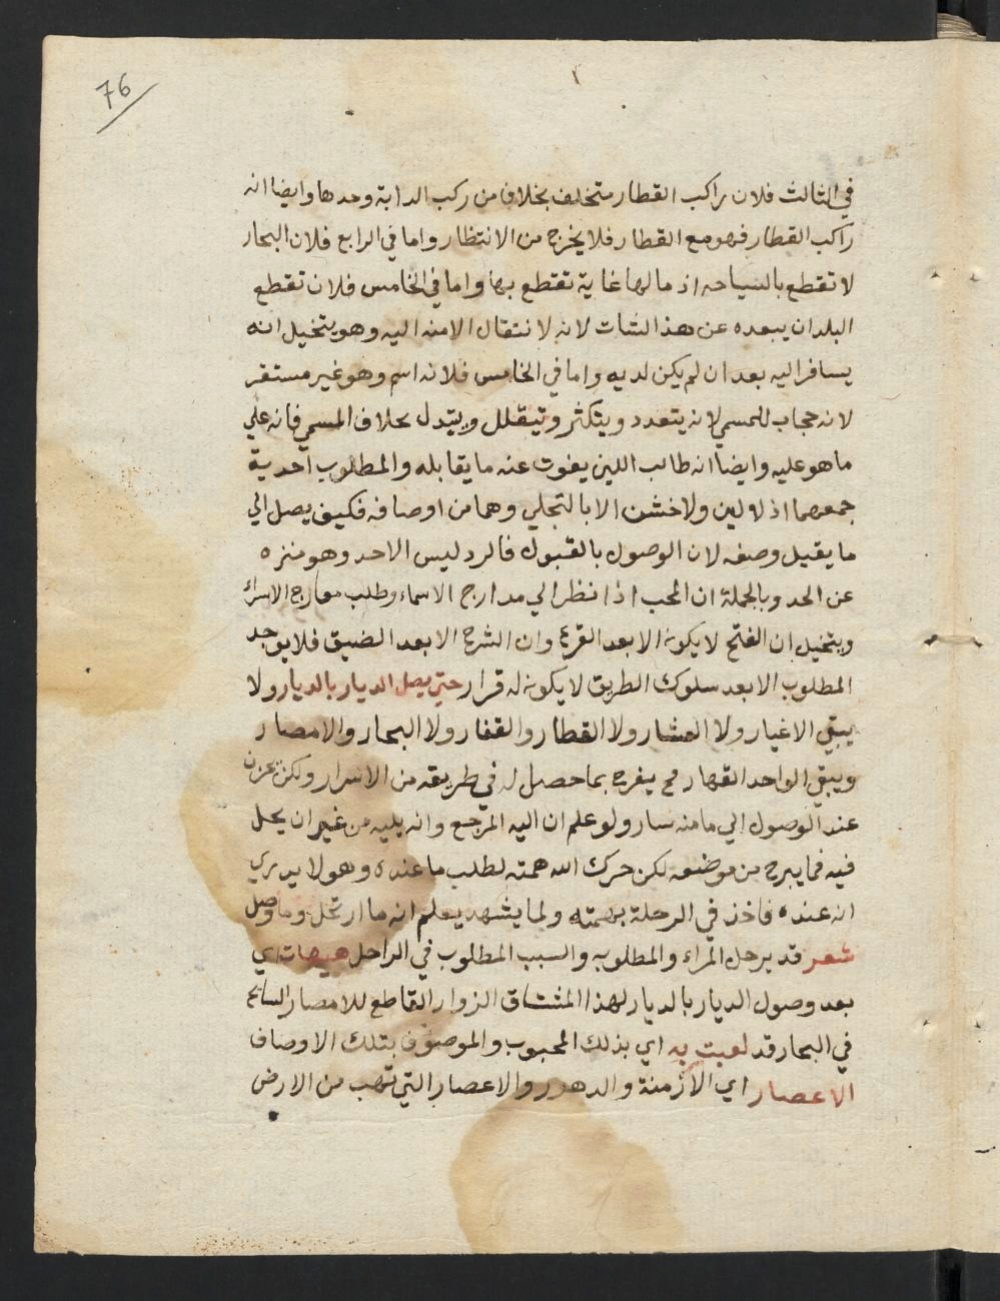 76
في الثالث فلان راكب القطار متخلف بخلاف من ركب الدابة وحدها وايضا انه
راكب القطار فهو مع القطار فلا يخرج من الانتظار واما في الرابع فلان البحار
لا تقطع بالسياحه اذ ما لها غاية تقطع بها واما في الخامس فلان تقطع
البلدان يبعده عن هذا لانه لا نتقال الامنه اليه وهو يتخيل انه
يسافر اليه بعد ان لم يكن لديه واما في الخامس فلانه اسم وهو غير مستقر
لانه حجاب للمسمي لانه يتعدد ويتكثر وتيقلل ويتبدل بخلاف المسمي فانه علي
ما هو عليه وايضا انه طالب اللين يفوت عنه ما يقابله والمطلوب احدية
جمعهما اذ لا لين ولا خشن الا بالتجلي وهما من اوصافه فكيف يصل الي
ما يقيل وصفه لان الوصول بالقبول فالرد ليس الاحد وهو منزه
عن الحد وبالجملة ان المحب اذا نظر الي مدارج الاسماء وطلب معارج الاسراء
ويتخيل ان الفتح لا يكون الا بعد القرع وان الشرح الا بعد الضيق فلا يوجد
المطلوب الا بعد سلوك الطريق لا يكون له قرار حتي يصل الديار بالديار ولا
يبقي الاغيار ولا العشار ولا القطار والقفار ولا البحار والامصار
ويبقي الواحد القهار يفرح بما حصل له في طريقه من الاسرار ولكن يحزن
عند الوصول الي ما منه سار ولو علم ان اليه المرجع وانه يليه من غير ان يحل
فيه فما يبرح من موضعه لكن حرك الله همته لطلب ما عنده وهو لا يدري
انه عنده فاخذ في الرحلة بهمته ولما يشهد يعلم انه ما ارتحل وما وصل
شعر قد يرحل المراء والمطلوبه والسبب المطلوب في الراحل هيهات اي
بعد وصول الديار بالديار لهذا المشتاق الزوار القاطع للامصار السابح
في البحار قد لعبت به اي بذلك المحبوب والموصوف بتلك الاوصاف
الاعصار اي الازمنة والدهور والاعصار التي تهب من الارض